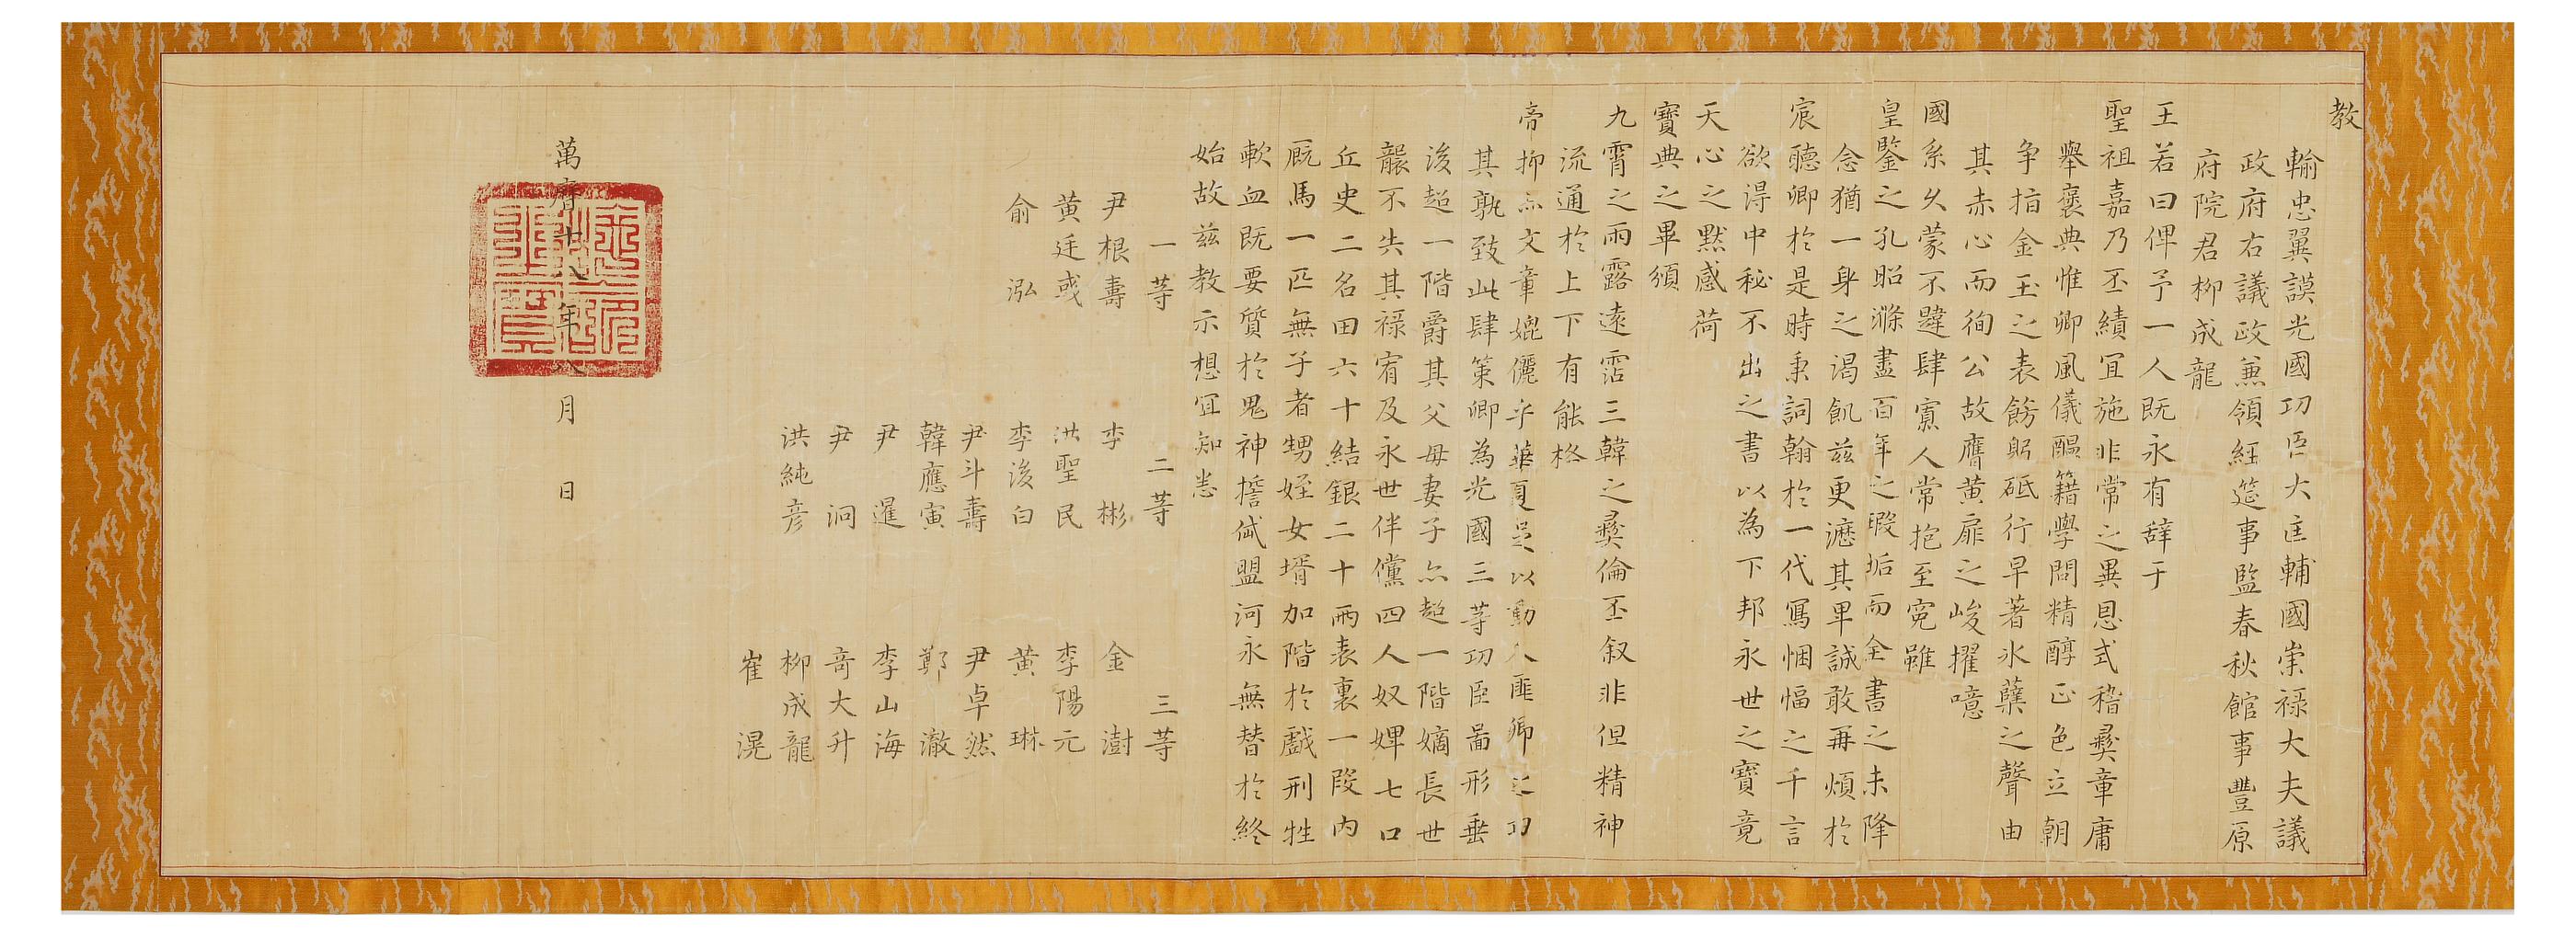 教
輸忠翼謨光國功臣大匡輔國崇禄大夫議
政府右議政兼領經筵事監春秋館事豐原
府院君柳成龍
王若曰俾予一人既永有辞于
聖祖嘉乃丕績宜施非常之異恩式稽彜章庸
舉褒典惟卿風儀醞籍學問精醇正色立朝
争指金玉之表飭躬砥行早著氷蘖之聲由
其赤心而徇公故膺黄扉之峻擢噫
國系久蒙不韙肆寡人常抱至寃雖
皇鑒之孔昭滌盡百年之瑕垢而全書之未降
念猶一身之渴飢兹更瀝其卑誠敢再煩於
宸聽卿於是時秉詞翰於一代寫悃愊之千言
欲得中秘不出之書以為下邦永世之寶竟
天心之黙感荷
寶典之畢頒
九霄之雨露遠霑三韓之彜倫丕叙非但精神
流通於上下有能格
帝抑亦文章媲儷乎華夏足以動人匪卿之功
其孰致此肆策卿為光國三等功臣啚形垂
後超一階爵其父母妻子亦超一階嫡長世
襲不失其禄宥及永世伴儻四人奴婢七口
丘史二名田六十結銀二十兩表裏一段内
厩馬一匹無子者甥姪女壻加階於戱刑牲
歃血既要質於鬼神擔俶盟河永無替於終
始故兹教示想宜知悉
一等 二等 三等
尹根壽 李彬 金澍
黄廷彧 洪聖民 李陽元
俞泓 李後白 黄琳
尹斗壽 尹卓然
韓應寅 鄭澈
尹暹 李山海
尹泂 竒大升
洪純彦 柳成龍
崔滉
萬曆十八年八月 日